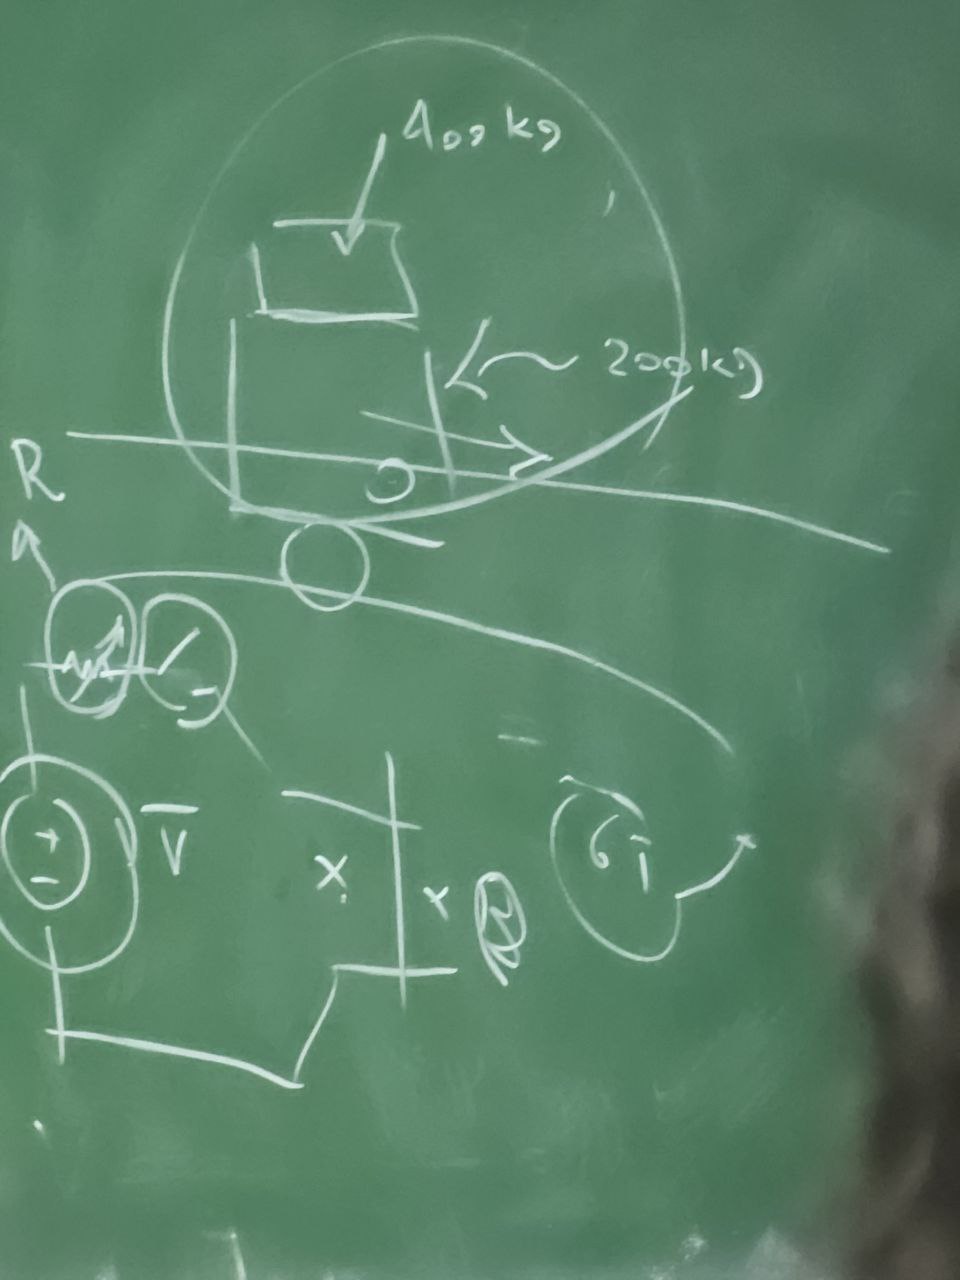 400 kg
200 kg
R
+
-
V
X
x